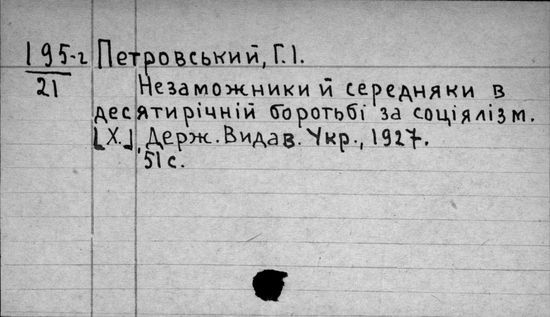 195-г Петровський, Г.І.
21
Незаможники й середняки в
десятирічній боротьбі за соціялізм.
[Х.], Держ. Видав. Укр., 1927.
51 с.